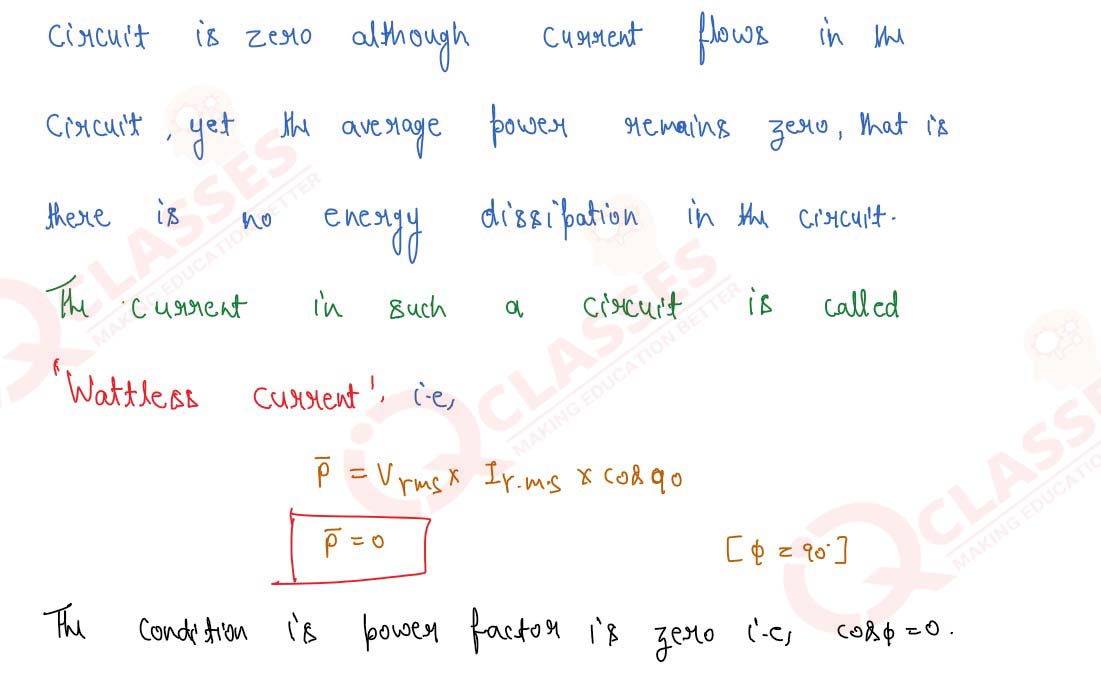 circuit is zero although current flows in the
circuit, yet the average power remains zero, that is
there is no energy dissipation in the circuit.
The current in such a circuit is called
'Wattless current', i.e,
P̄ = Vrms × Ir.m.s × cos 90
P̄ = 0 [ϕ = 90°]
The condition is power factor is zero i.e, cosϕ = 0.
CLASSES
MAKING EDUCATION BETTER
CLASSES
MAKING EDUCATION BETTER
CLASSES
MAKING EDUCATION